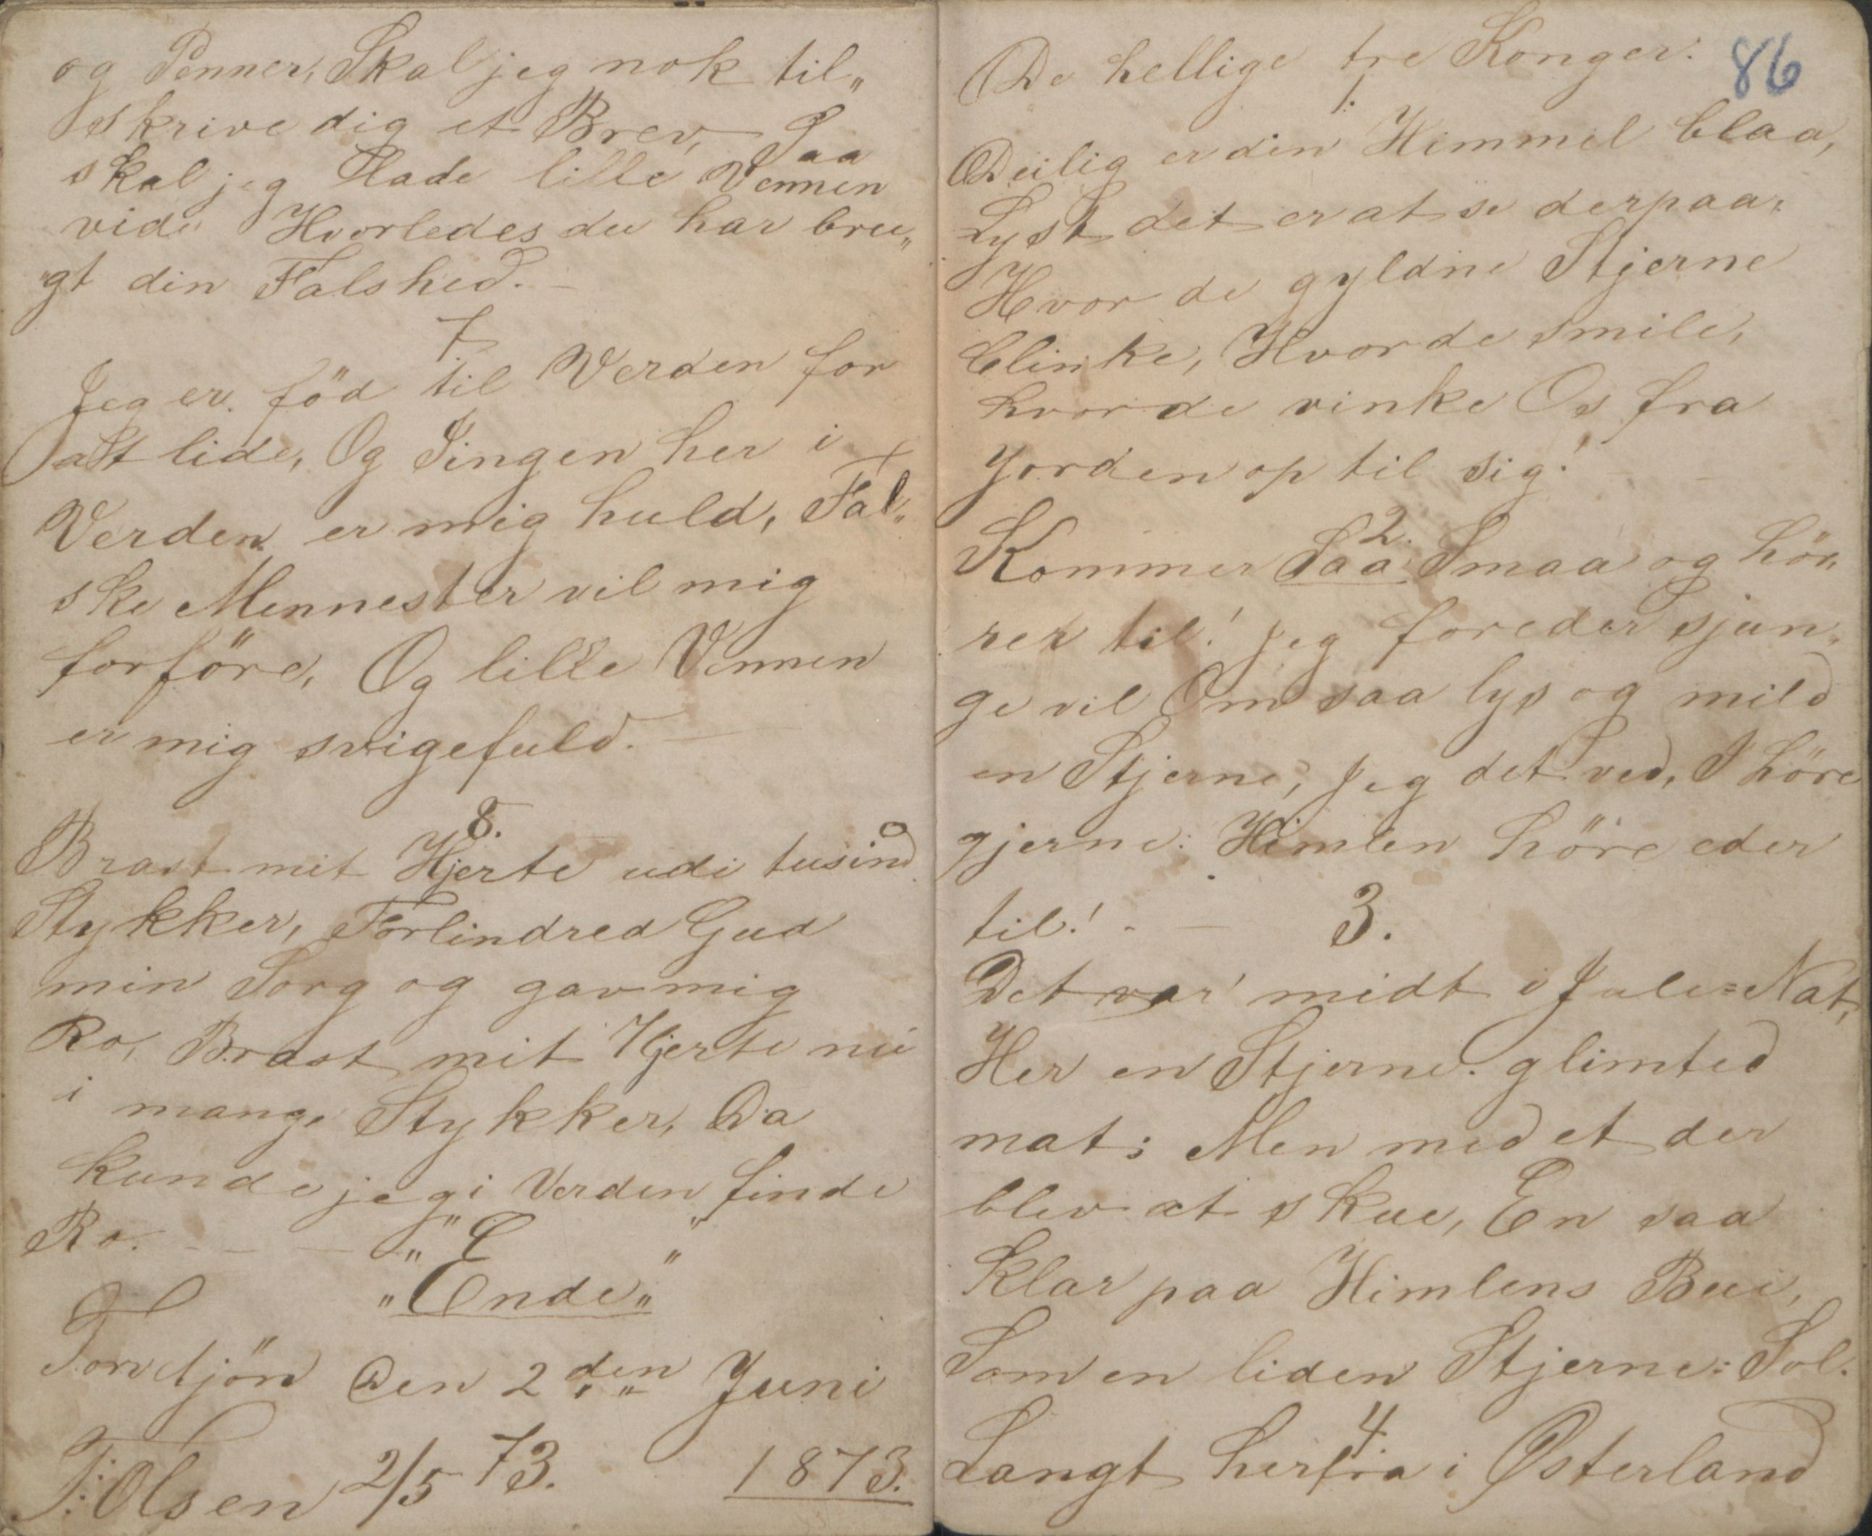 og Penner, Skal jeg nok til„
skrive dig et Brev, Saa
skal jeg Lade lille Vennen
vide Hvorledes du har bru„
„gt din Falshed. –
7
Jeg er. föd til Verden for
att lide, Og Jingen her i
Verden er mig huld, Fal„
ske Mennester vil mig
forföre, Og lille Vennen
er mig svigefuld. –
8.
Brast mit Hjerte udi tusind
Stykker, Forlindred Gud
min Sorg og gav mig
Ro, Brast mit Hjerte nu
i mange Stykker, Da
kunde jeg i Verden finde
Ro. – – –
„Ende„
den 2den Juni
T: Olsen 2/5 73. 1873.
86
De hellige tre Konger:
1.
Deilig er din Himmel blaa,
Lyst det er at se derpaa,
Hvor de gyldne Stjerne
blinke, Hvor de smile,
hvor de vinke Os fra
Jorden op til sig! –
2.
Kommer Saa Smaa og hö„
rer til! Jeg for eder sjun„
ge vil Om saa lys og mild
en Stjerne, Jeg det ved, I höre
gjerne: Himlen höre eder
til! – –
3.
Det var midt i Jule=Nat,
Her en Stjerne glimted
mat; Men med et der
blev at skue, En saa
klar paa Himlens Bue,
Som en liden Stjerne: Sol.
4.
Langt herfra i Østerland